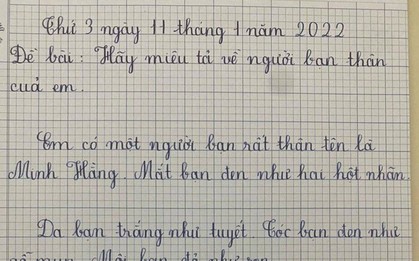 Thứ 3 ngày 11 tháng 1 năm 2022
Đề bài : Hãy miêu tả về người bạn thân
cuả em.
Em có một người bạn rất thân tên là
Minh Hằng. Mắt bạn đen như hai hột nhãn.
Da bạn trắng như tuyết. Tóc bạn đen như
gỗ mun. Môi bạn đỏ như son